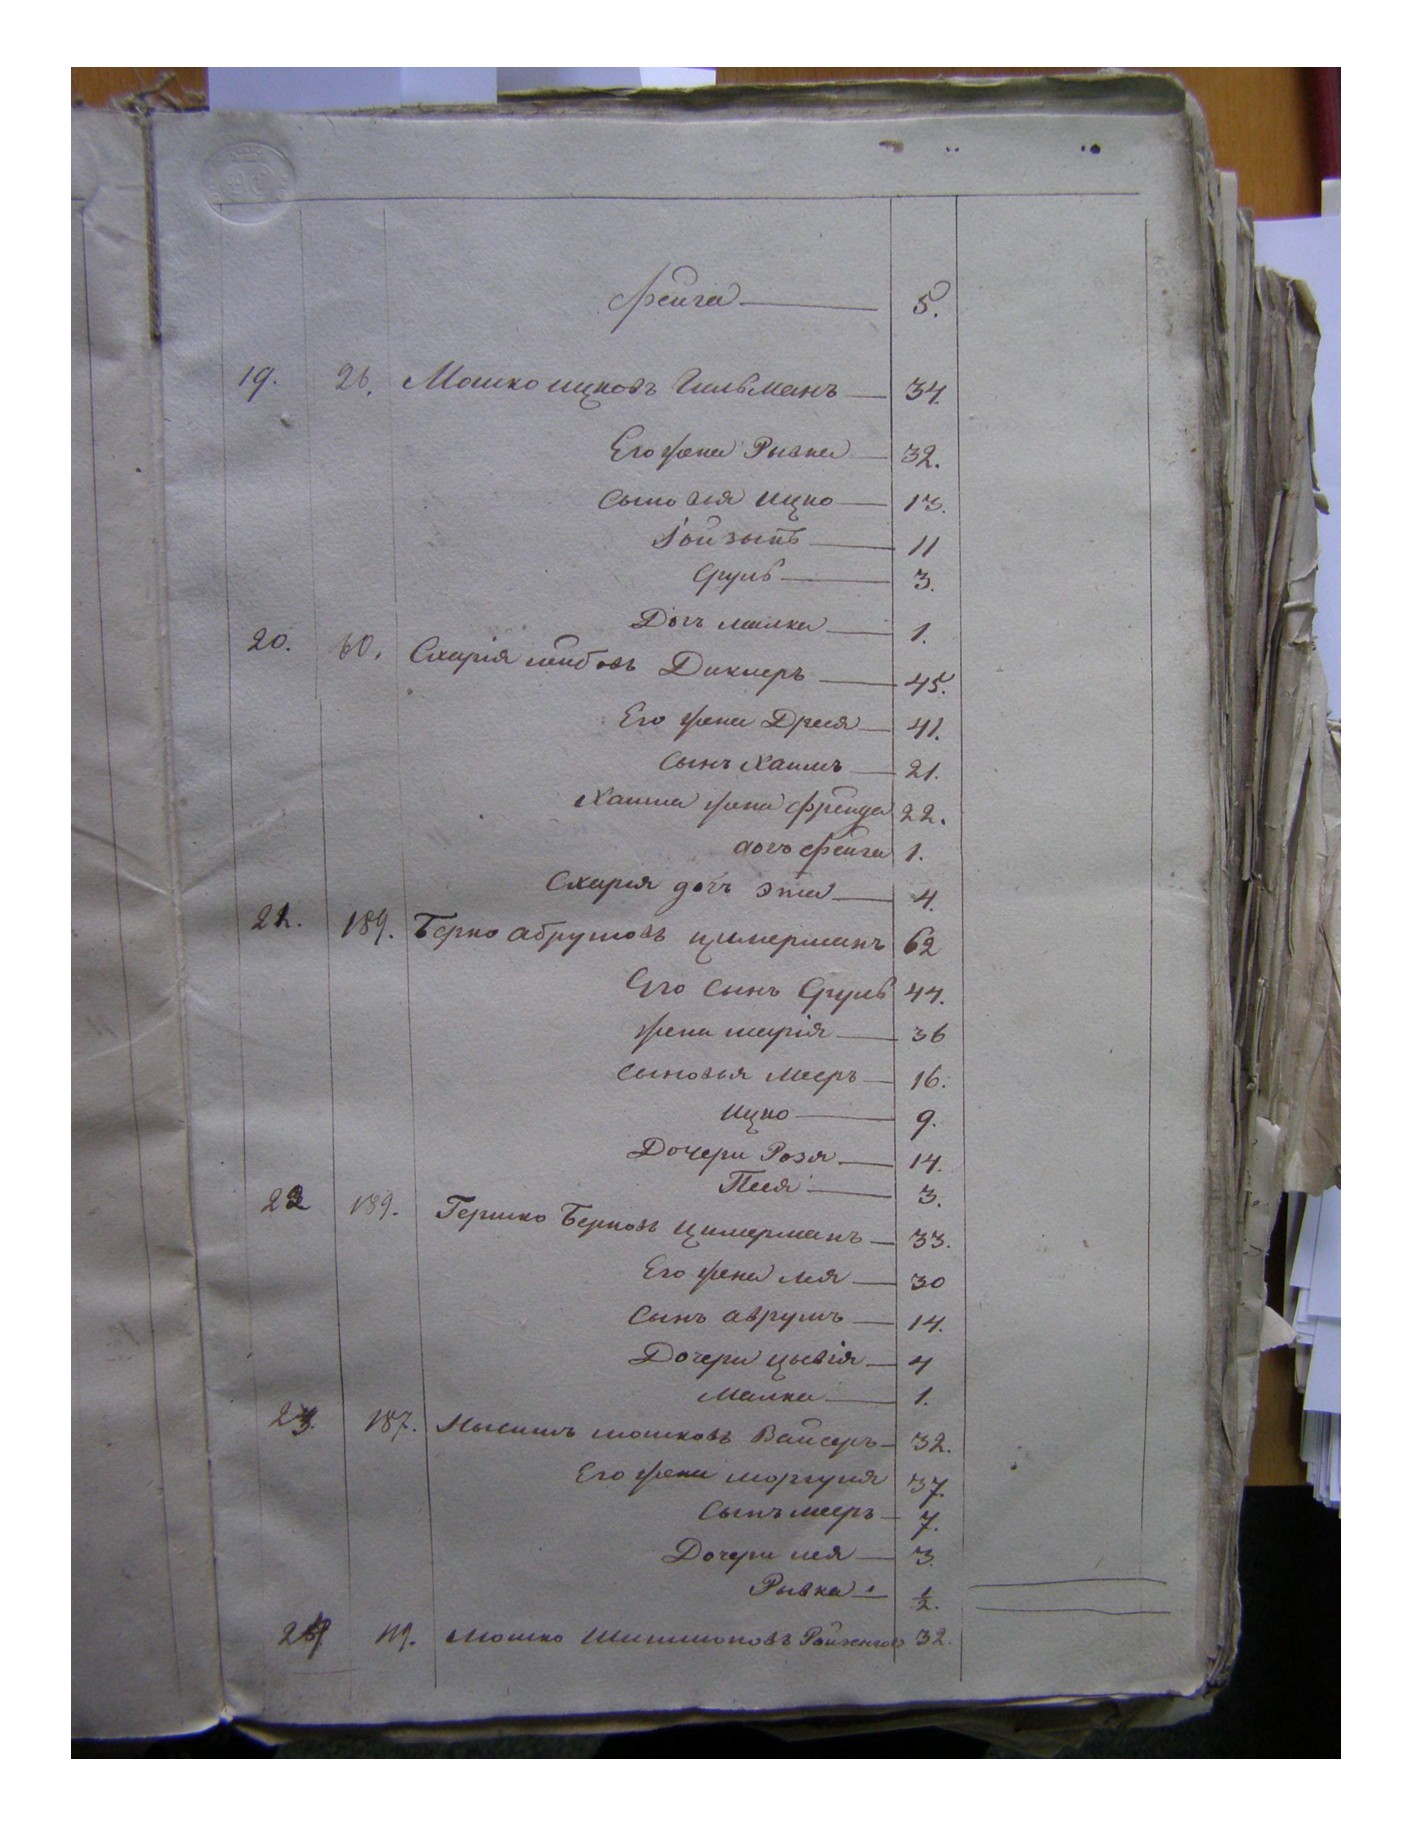 Фейга 5.
19. 26. Мошко Ицковъ Гильманъ 34.
Его жена Рывка 32.
Сыновья Ицко 13.
11
Сруль 3.
Дочь Малка 1.
20. 60. Схарія Лейбовъ 45.
Его жена Двося 41.
Сынъ Хаимъ 21.
Хаима жена Фрейда 22.
дочь Фейга 1.
Схарія дочь Эта 4.
21. 189. Берко Абрумовъ Цимерманъ 62
Его Сынъ Сруль 44.
жена Марія 36
Сыновья Мееръ 16.
Ицко 9.
Дочери Розя 14.
Песя 3.
22 189. Гершко Берковъ Цимерманъ 33.
Его жена Лея 30
Сынъ Аврумъ 14.
Дочери Цывія 4
Малка 1.
23. 187. Мошковъ Вайсеръ 32.
Его жена 37.
Сынъ Мееръ 7.
Дочери Лея 3.
Рывка 1/2.
24 119. Мошко 32.